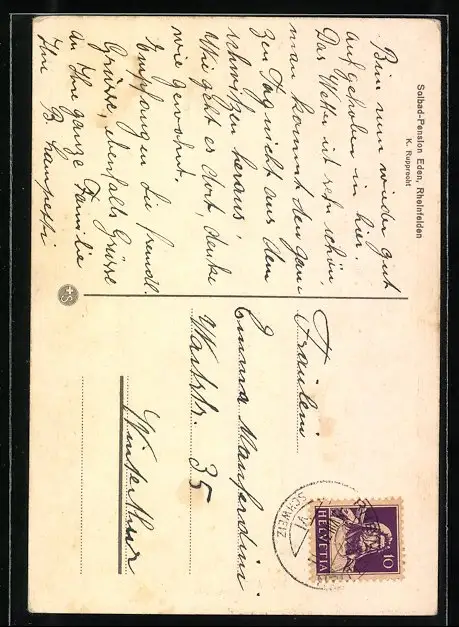 Solbad-Pension Eden, Rheinfelden
K. Rupprecht
Bin nun wieder gut
aufgehoben in hier.
Das Wetter ist sehr schön,
man kommt den gan-
zen Tag nicht aus dem
schwitzen heraus
Wie geht es dort, denke
wie gewohnt.
Empfangen Sie freundl.
Grüsse, ebenfalls Grüsse
an Ihre ganze Familie
Ihre B.
Fräulein
Emma Manfredini
Wartstr. 35
Winterthur
HELVETIA
10
SCHWEIZ
VI